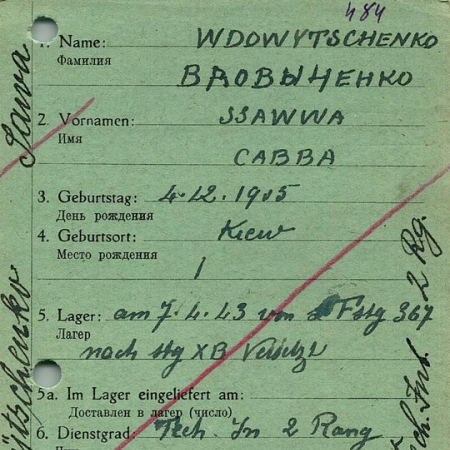 484
1. Name: WDOWYTSCHENKO
Фамилия ВДОВЫЧЕНКО
2. Vornamen: SSAWWA
Имя
САВВА
3. Geburtstag: 4.12.1905
День рождения
4. Geburtsort: Kiew
Место рождения
5. Lager: am 7.4.43 von Fstg 367
Лагерь
nach stg XB Versetzt
5a. Im Lager eingeliefert am:
Доставлен в лагерь (число)
6. Dienstgrad: Tech. In 2 Rang
Sawa
2 Rg.